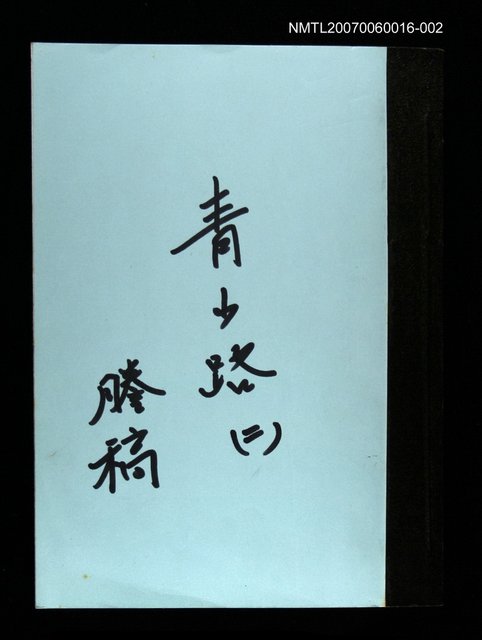 NMTL20070060016-002
青山路
(二)
謄稿